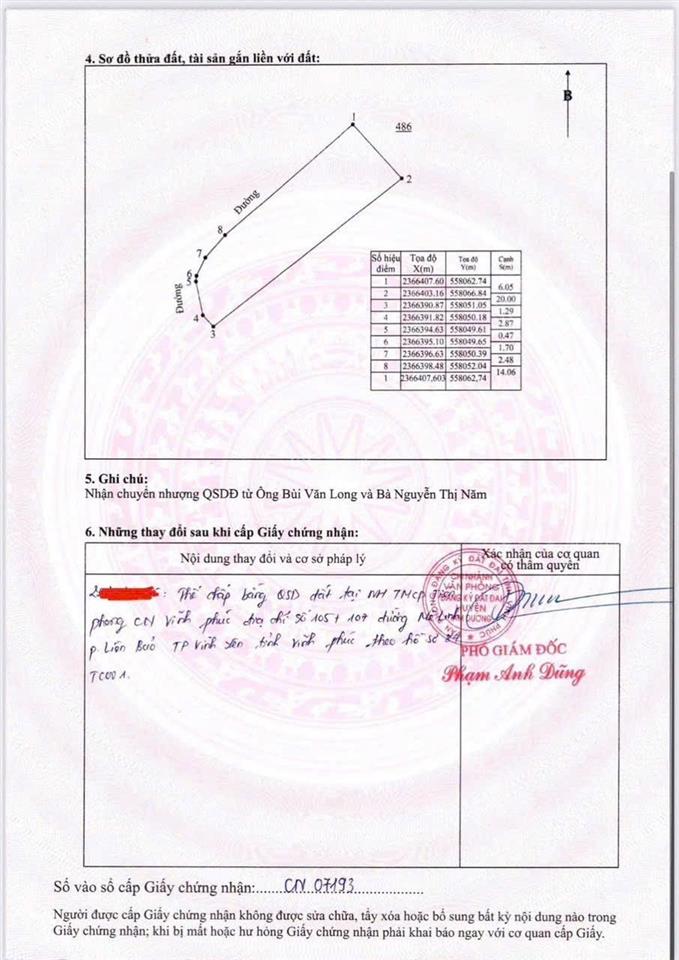 4. Sơ đồ thửa đất, tài sản gắn liền với đất:
B
1
486
2
Đường
8
7
6
5
Đường
4
3
Số hiệu điểm Tọa độ X(m) Tọa độ Y(m) Cạnh S(m)
1 2366407.60 558062.74
6.05
2 2366403.16 558066.84
20.00
3 2366390.87 558051.05
1.29
4 2366391.82 558050.18
2.87
5 2366394.63 558049.61
0.47
6 2366395.10 558049.65
1.70
7 2366396.63 558050.39
2.48
8 2366398.48 558052.04
14.06
1 2366407,603 558062,74
5. Ghi chú:
Nhận chuyển nhượng QSDĐ từ Ông Bùi Văn Long và Bà Nguyễn Thị Năm
6. Những thay đổi sau khi cấp Giấy chứng nhận:
Nội dung thay đổi và cơ sở pháp lý
Xác nhận của cơ quan
có thẩm quyền
: Thế chấp bằng QSD đất tại NH TMCP
phong CN Vĩnh phúc địa chỉ số 105+107 đường Mê Linh
p. Liên Bảo TP Vĩnh Yên tỉnh Vĩnh phúc theo hồ sơ
TC001.
CHI NHÁNH
VĂN PHÒNG
ĐĂNG KÝ ĐẤT ĐAI
HUYỆN
PHÓ GIÁM ĐỐC
Phạm Anh Dũng
Số vào sổ cấp Giấy chứng nhận:......CN 07193..................
Người được cấp Giấy chứng nhận không được sửa chữa, tẩy xóa hoặc bổ sung bất kỳ nội dung nào trong
Giấy chứng nhận; khi bị mất hoặc hư hỏng Giấy chứng nhận phải khai báo ngay với cơ quan cấp Giấy.